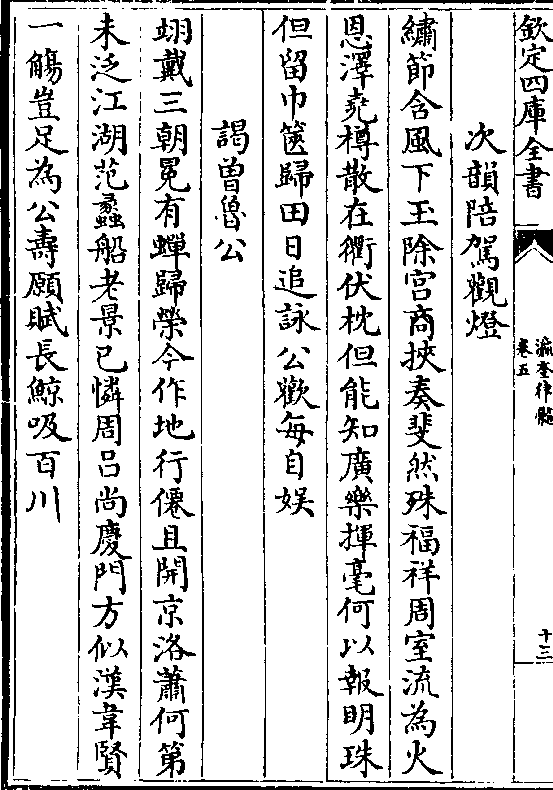 欽定四庫全書
瀛奎律髓
卷五
十三
次韻陪駕觀燈
繡節含風下玉除宫商挾奏斐然殊福祥周室流為火
恩澤堯樽散在衢伏枕但能知廣樂揮毫何以報明珠
但留巾篋歸田日追詠公歡每自娱
謁曽魯公
翊戴三朝冕有蟬歸榮今作地行僊且開京洛蕭何第
未泛江湖范蠡船老景已憐周吕尚慶門方似漢韋賢
一觴豈足為公壽願賦長鯨吸百川